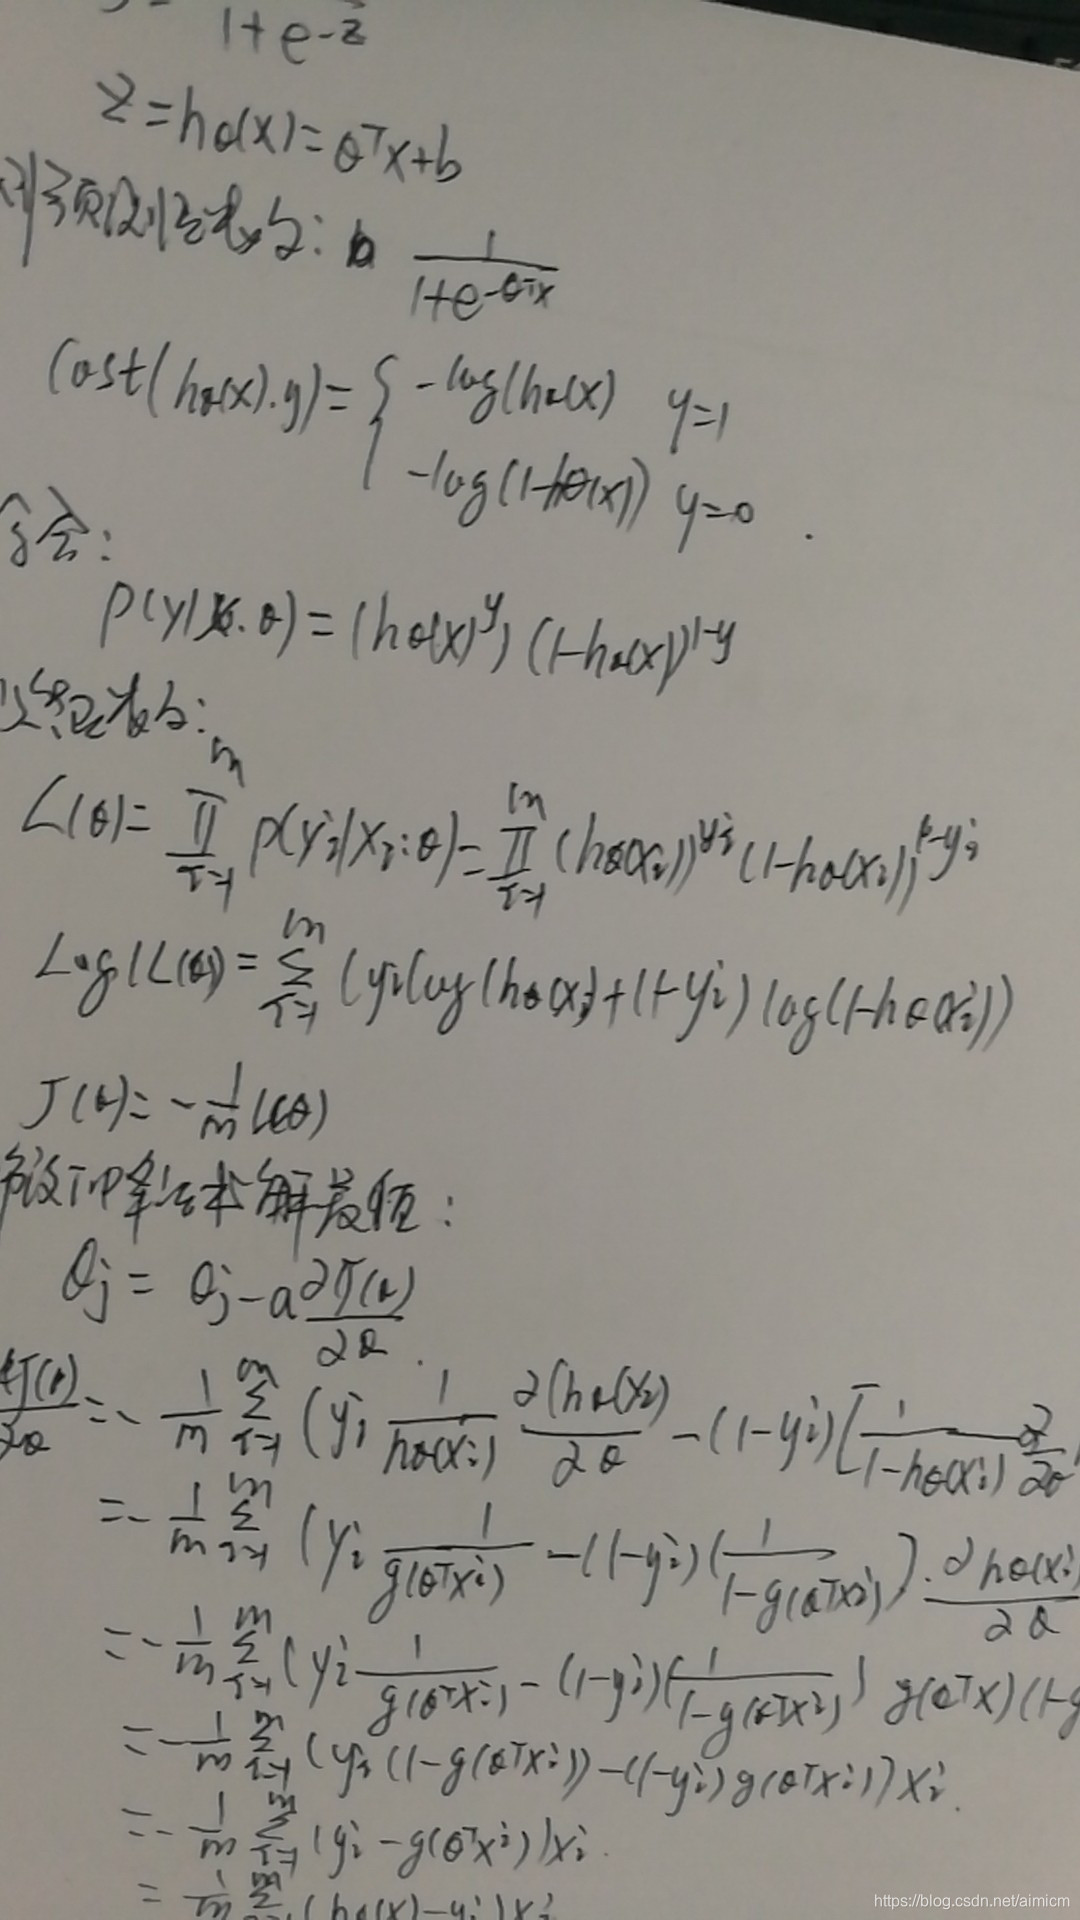 1+e-z
z=hθ(x)=θᵀx+b
则预测函数为: 1/(1+e-θᵀx)
Cost(hθ(x).y)={ -log(hθ(x) y=1
-log(1-hθ(x)) y=0 .
合:
P(y|x.θ)=(hθ(x)^y)(1-hθ(x))^1-y
为:
L(θ)= ∏ᵐi=1 p(yi|xi:θ)= ∏ᵐi=1 (hθ(xi))^yi (1-hθ(xi))^1-yi
Log(L(θ)= Σᵐi=1 (yi log(hθ(xi)+(1-yi) log(1-hθ(xi))
J(θ)=-1/m L(θ)
下降法求解最值:
θj = θj-a ∂J(θ)/∂θ .
∂J(θ)/∂θ =- 1/m Σᵐi=1 (yi 1/hθ(xi) ∂(hθ(xi)/∂θ -(1-yi)[1/(1-hθ(xi)) ∂/∂θ
=- 1/m Σᵐi=1 (yi 1/g(θᵀxi) -(1-yi)(1/(1-g(θᵀxi)) . ∂hθ(xi/∂θ
=- 1/m Σᵐi=1 (yi 1/g(θᵀxi) -(1-yi)(1/(1-g(θᵀxi)) g(θᵀx)(1-g
=- 1/m Σᵐi=1 (yi (1-g(θᵀxi))-(1-yi)g(θᵀxi))xi.
=- 1/m Σᵐi=1 (yi -g(θᵀxi))xi.
= 1/m Σᵐ (hθ(x)-yi)xi
https://blog.csdn.net/aimicm